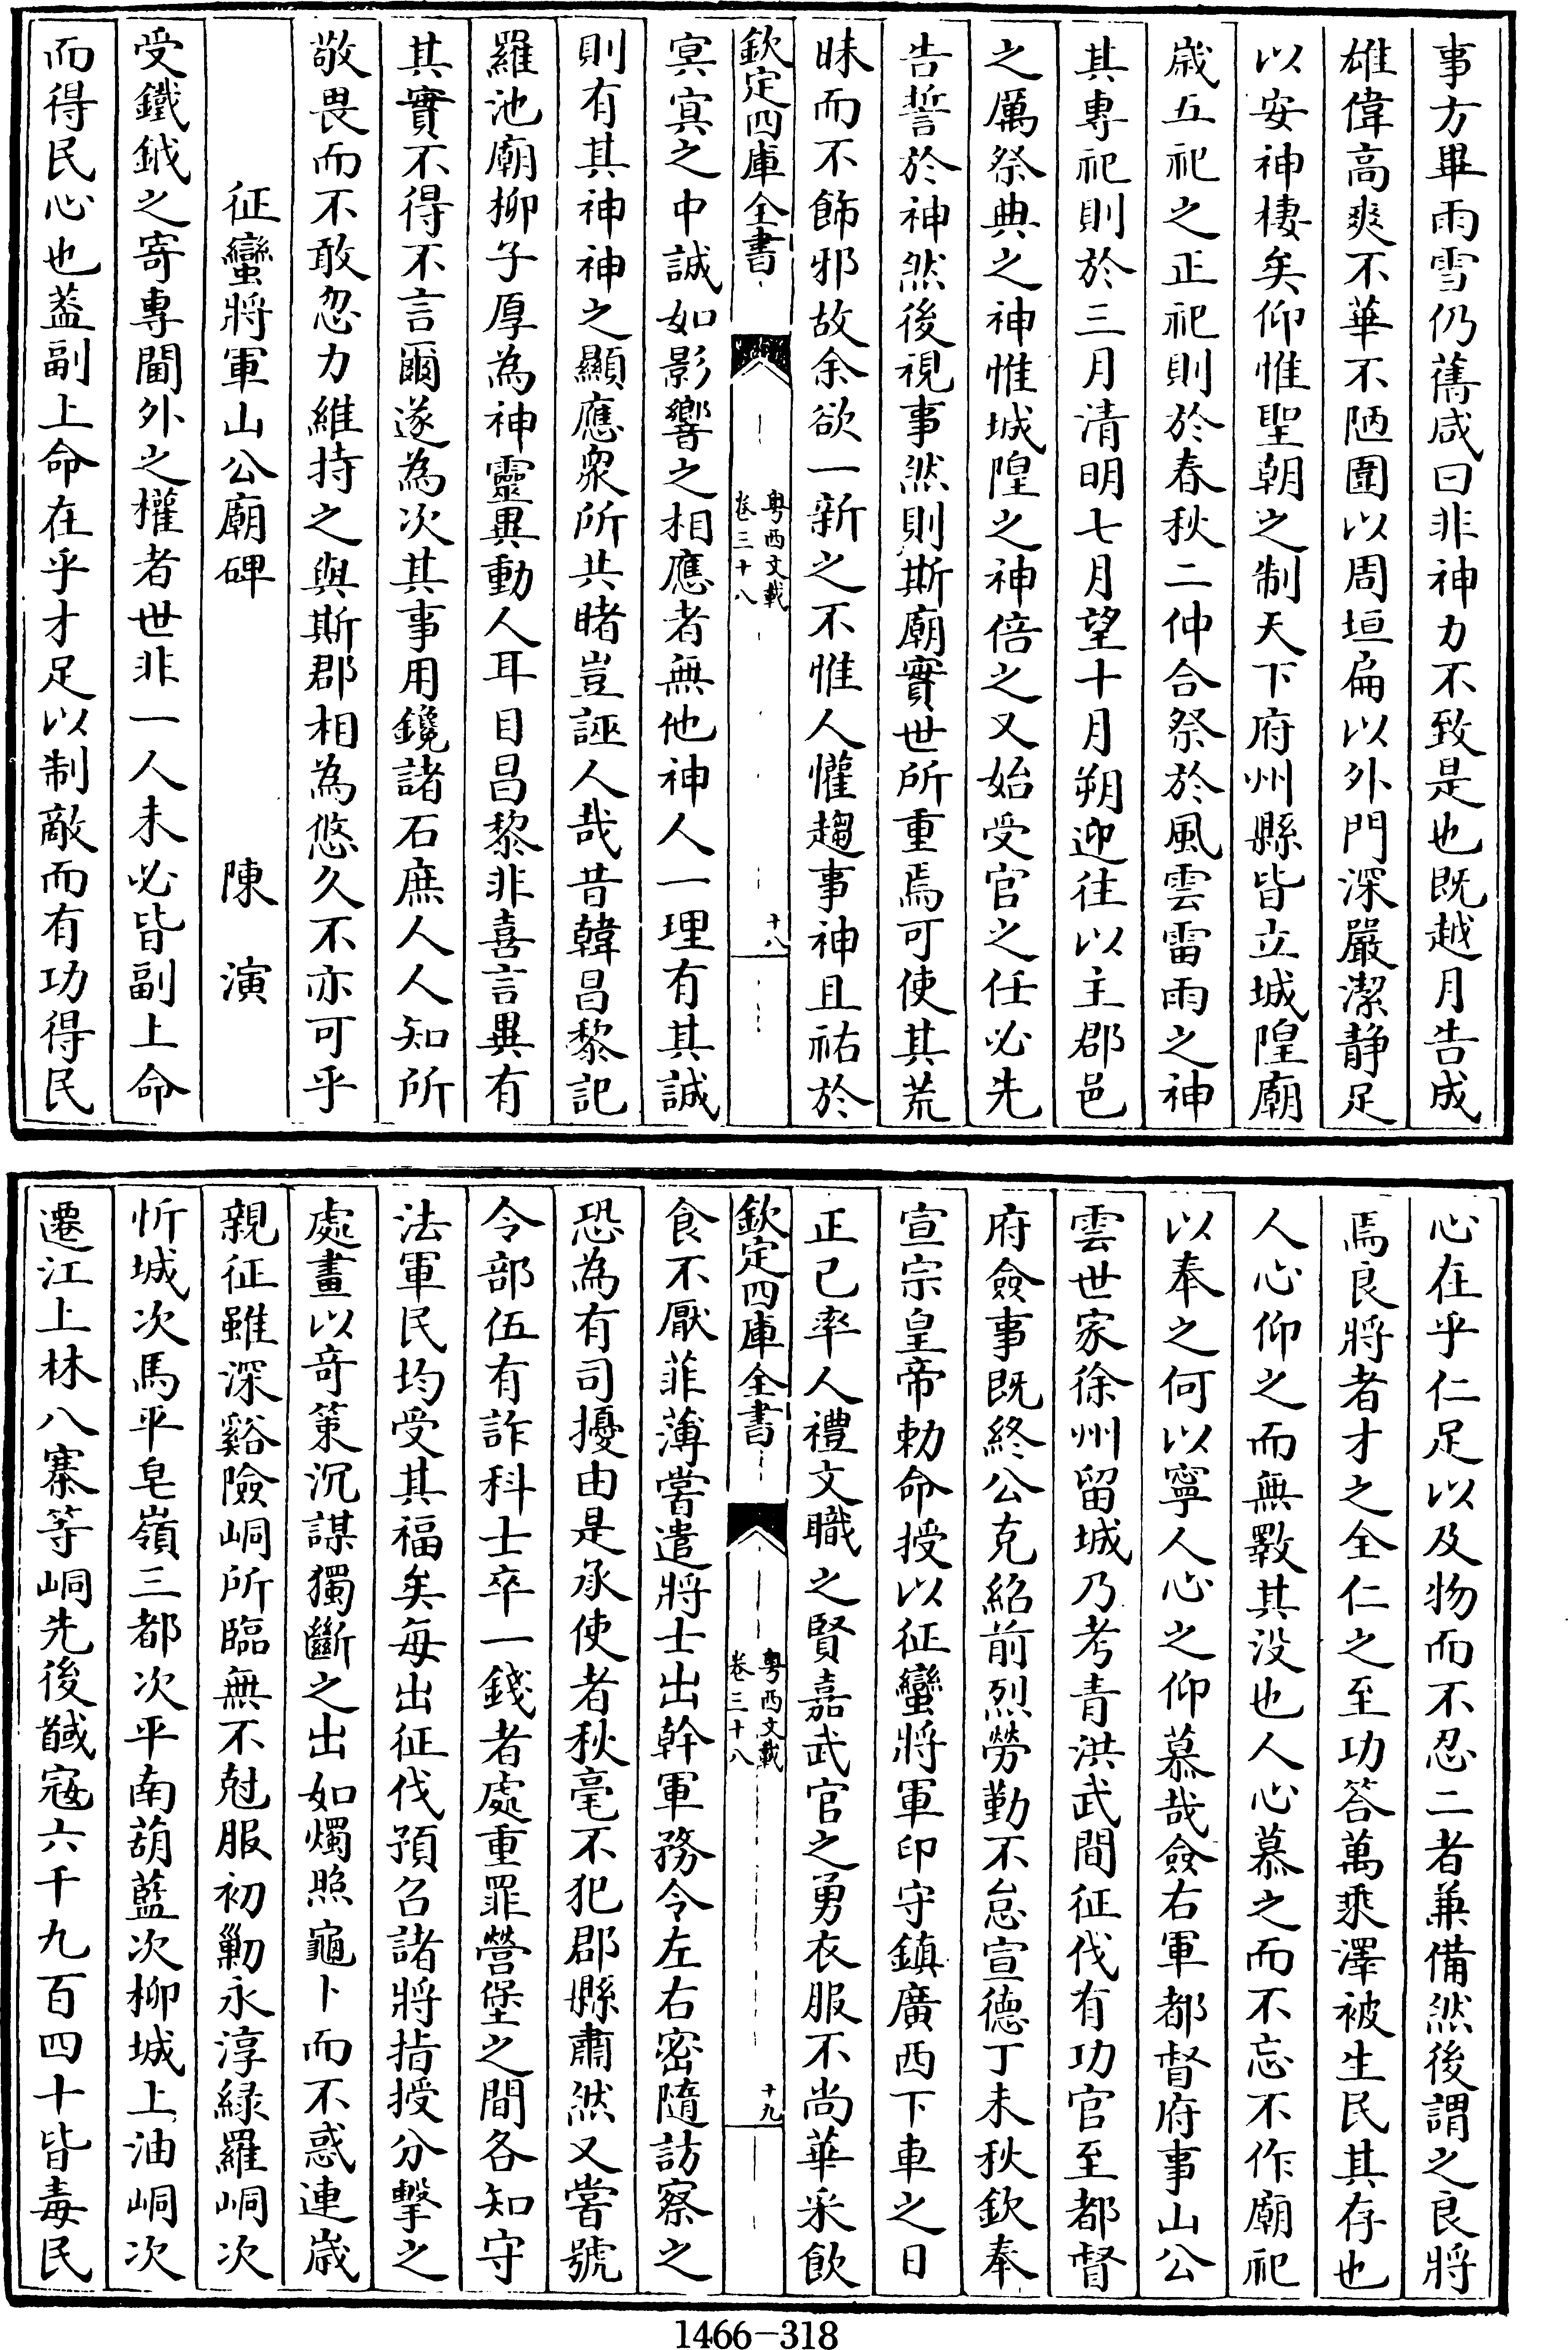 事方畢雨雪仍舊咸曰非神力不致是也既越月告成
雄偉高爽不華不陋圍以周垣扁以外門深嚴潔静足
以安神棲矣仰惟聖朝之制天下府州縣皆立城隍廟
歲五祀之正祀則於春秋二仲合祭於風雲雷雨之神
其專祀則於三月清明七月望十月朔迎往以主郡邑
之厲祭典之神惟城隍之神倍之又始受官之任必先
告誓於神然後視事然則斯廟實世所重焉可使其荒
昧而不飾邪故余欲一新之不惟人懽趨事神且祐於
欽定四庫全書
粤西文載
卷三十八
十八
冥冥之中誠如影響之相應者無他神人一理有其誠
則有其神神之顯應衆所共睹豈誣人哉昔韓昌黎記
羅池廟柳子厚為神靈異動人耳目昌黎非喜言異有
其實不得不言爾遂為次其事用鑱諸石庶人人知所
敬畏而不敢忽力維持之與斯郡相為悠久不亦可乎
征蠻將軍山公廟碑 陳演
受鐵鉞之寄專閫外之權者世非一人未必皆副上命
而得民心也葢副上命在乎才足以制敵而有功得民
心在乎仁足以及物而不忍二者兼備然後謂之良將
焉良將者才之全仁之至功答萬乘澤被生民其存也
人心仰之而無斁其没也人心慕之而不忘不作廟祀
以奉之何以寧人心之仰慕哉僉右軍都督府事山公
雲世家徐州留城乃考青洪武間征伐有功官至都督
府僉事既終公克紹前烈勞勤不怠宣德丁未秋欽奉
宣宗皇帝勅命授以征蠻將軍印守鎮廣西下車之日
正已率人禮文職之賢嘉武官之勇衣服不尚華采飲
欽定四庫全書
粤西文載
卷三十八
十九
食不厭菲薄嘗遣將士出幹軍務令左右密隨訪察之
恐為有司擾由是承使者秋毫不犯郡縣肅然又嘗號
令部伍有詐科士卒一錢者處重罪營堡之間各知守
法軍民均受其福矣每出征伐預召諸將指授分擊之
處畫以竒策沉謀獨斷之出如燭照龜卜而不惑連歲
親征雖深谿險峒所臨無不尅服初勦永淳緑羅峒次
忻城次馬平皂嶺三都次平南葫藍次柳城上油峒次
遷江上林八寨等峒先後馘寇六千九百四十皆毒民
1466-318